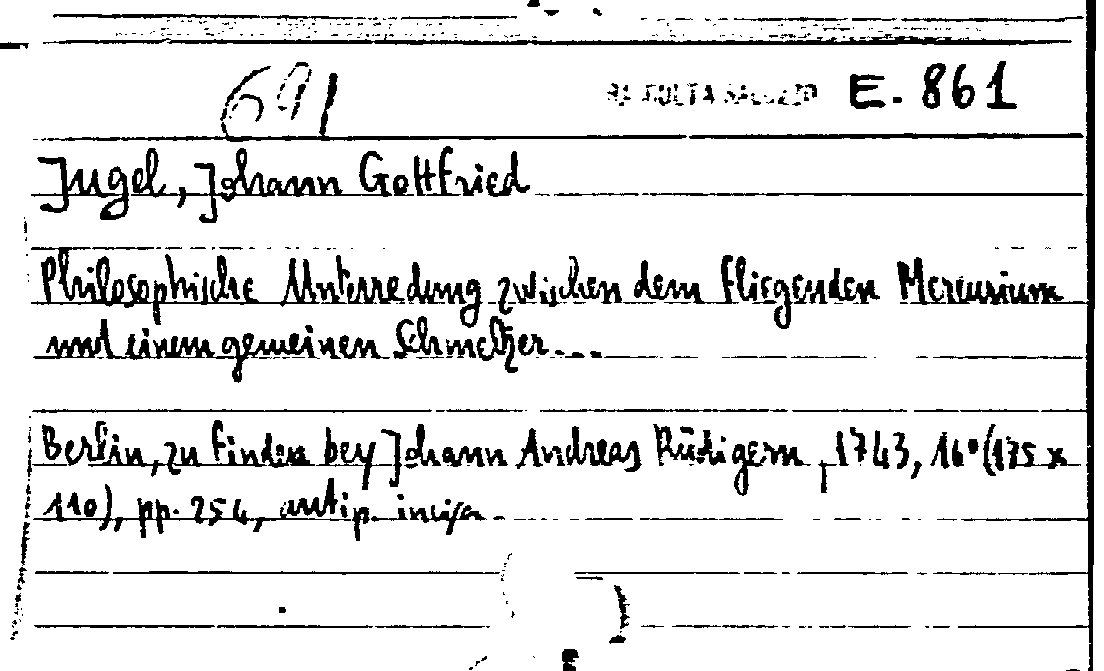 691 RACCOLTA SALUZZO E. 861
Jugel, Johann Gottfried
Philosophische Unterredung zwischen dem fliegenden Mercurium
und einem gemeinen Schmeltzer...
Berlin, zu finden bey Johann Andreas Rüdigern, 1743, 16° (175 x
110), pp. 254, antip. incisa.